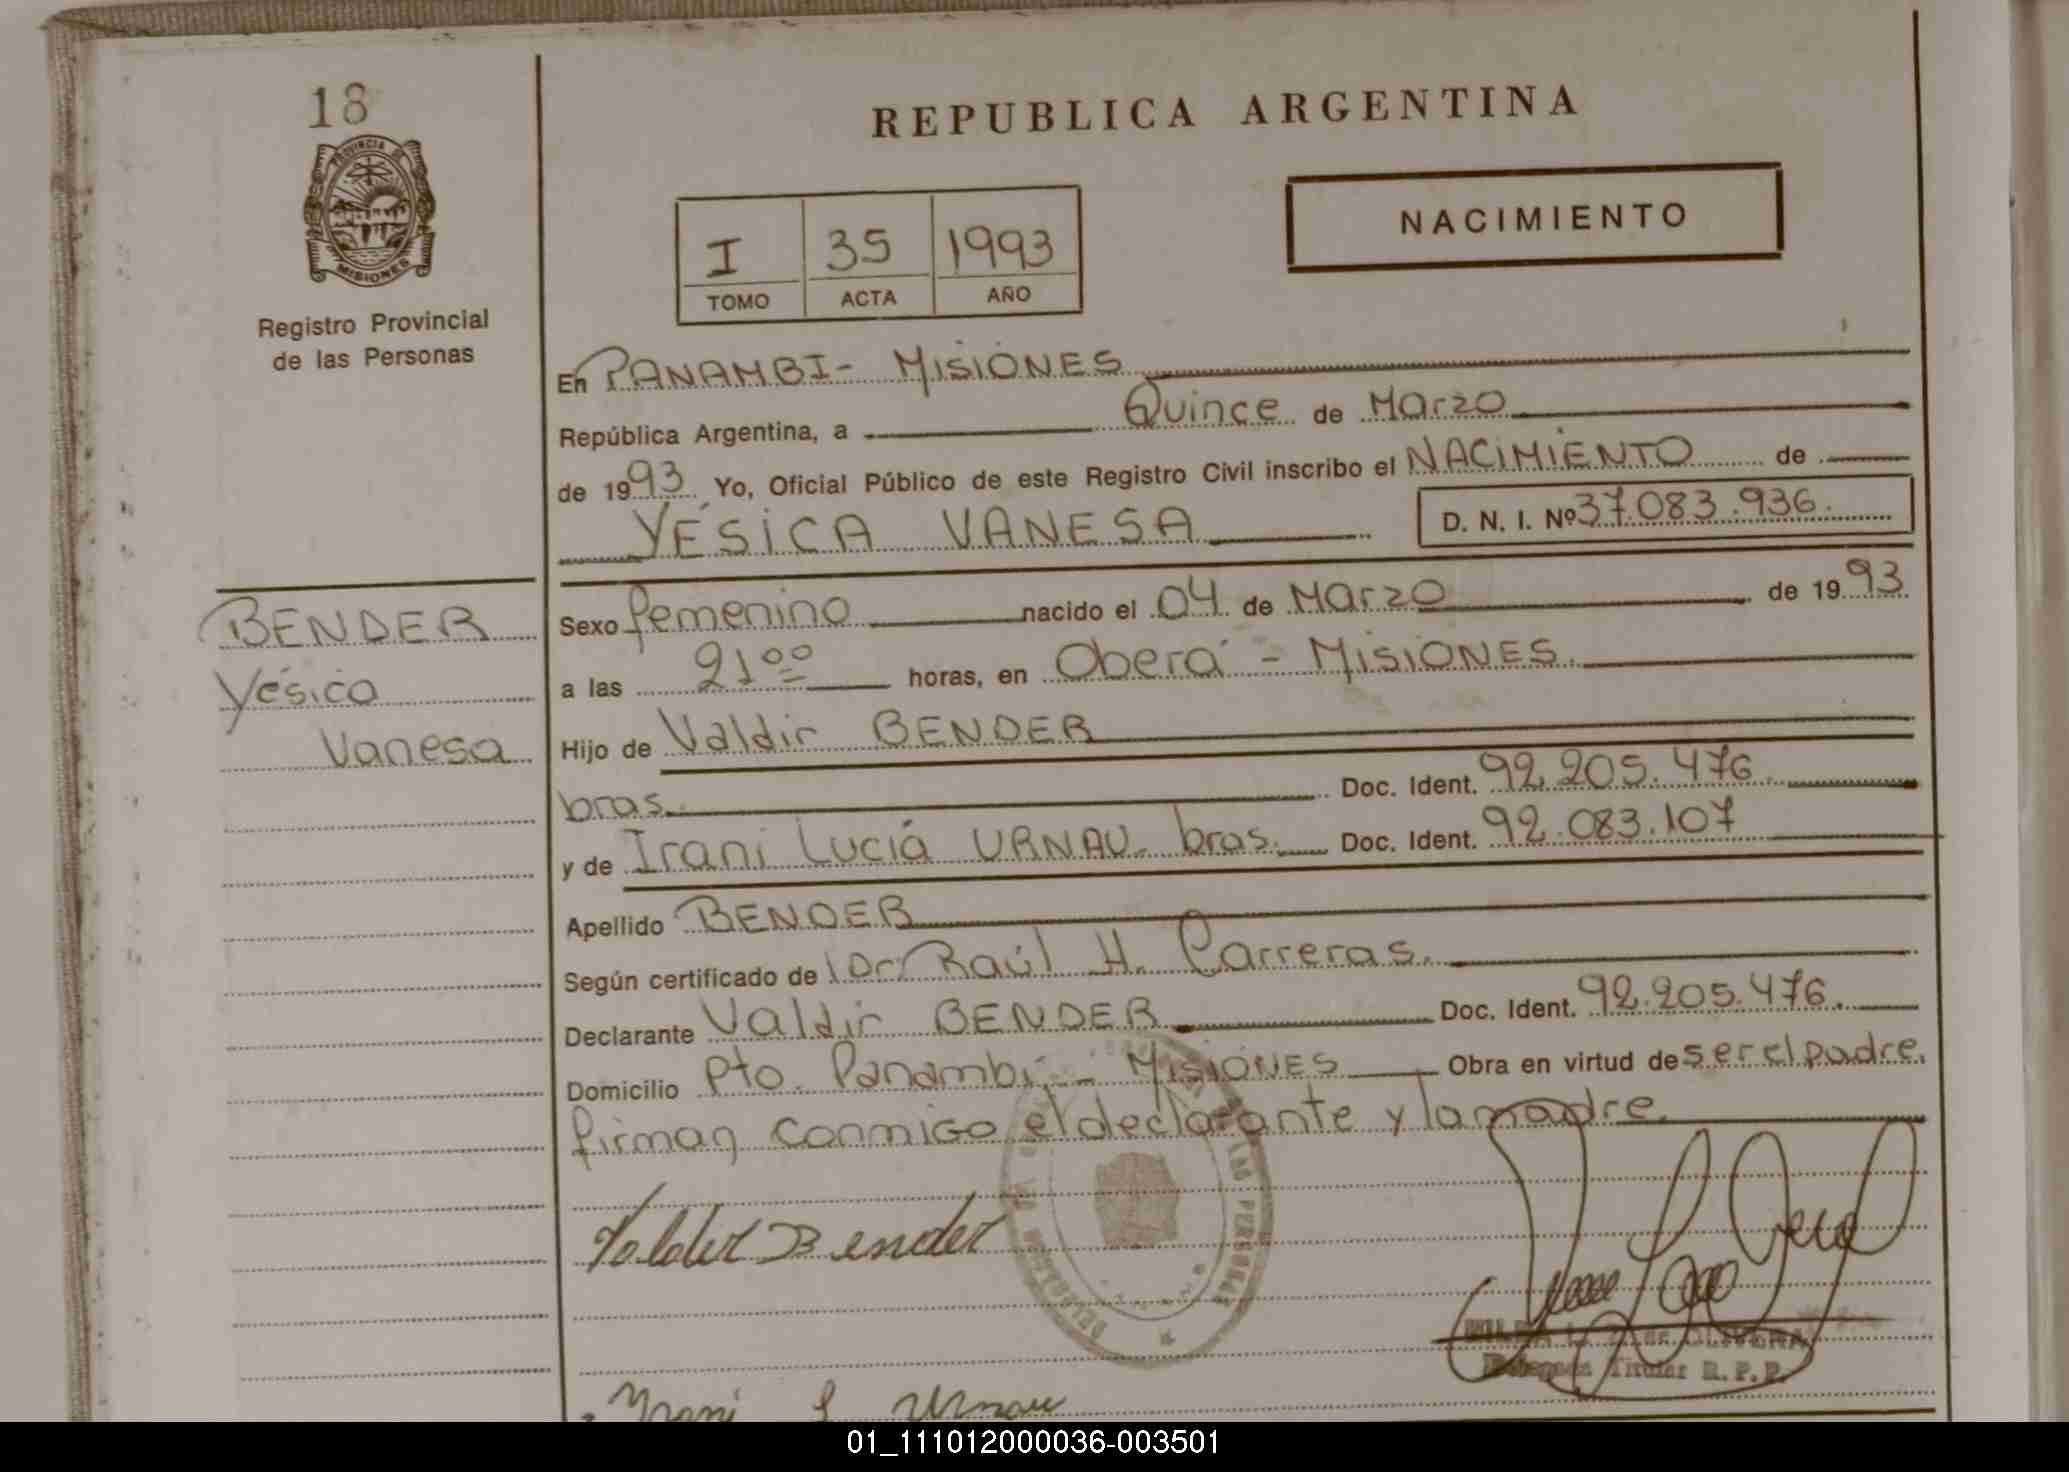 18
PROVINCIA DE
MISIONES
Registro Provincial
de las Personas
REPUBLICA ARGENTINA
I 35 1993
TOMO ACTA AÑO
NACIMIENTO
En PANAMBI - MISIONES
República Argentina, a Quince de Marzo
de 1993 Yo, Oficial Público de este Registro Civil inscribo el NACIMIENTO de
YÉSICA VANESA D. N. I. Nº 37.083.936.
BENDER
Yésica
Vanesa
Sexo femenino nacido el 04 de Marzo de 1993
a las 21 00 horas, en Oberá - MISIONES.
Hijo de Valdir BENDER
bras. Doc. Ident. 92.205.476
y de Irani Luciá URNAU bras. Doc. Ident. 92.083.107
Apellido BENDER
Según certificado de Dr Raúl H. Carreras.
Declarante Valdir BENDER Doc. Ident. 92.205.476.
Domicilio Pto. Panambí - MISIONES Obra en virtud de ser el padre.
firman conmigo el declarante y la madre.
Valdir Bender
LAS PERSONAS
OLIVERA
Titular R. P. P.
Irani L Urnau
01_111012000036-003501